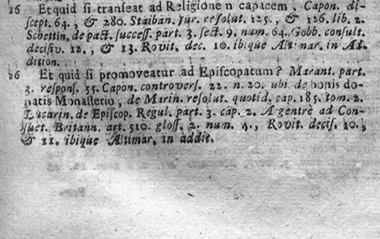 16 Et quid si transeat ad Religione n capacem, Capon. di-
scept. 64., & 280. Staiban. Jur. resolut. 125., & 126. lib. 2.
Schettin. de pact. success. part. 3. sect. 9. num. 64. Gobb. consult.
decisiv. 12., & 13. Rovit. dec. 10. ibique Altimar. in Ad-
dition.
16 Et quid si promoveatur ad Episcopatum? Marant. part.
3. respons. 55. Capon. controvers. 22. n. 20. ubi de bonis do-
natis Monasterio, de Marin. resolut. quotid. cap. 185. tom. 2.
de Episcop. Regul. part. 3. cap. 2. Argentrè ad Con-
suet. Britann. art. 510. gloss. 2. num. 4., Rovit. decis. 10.,
& 11. ibique Altimar. in addit.